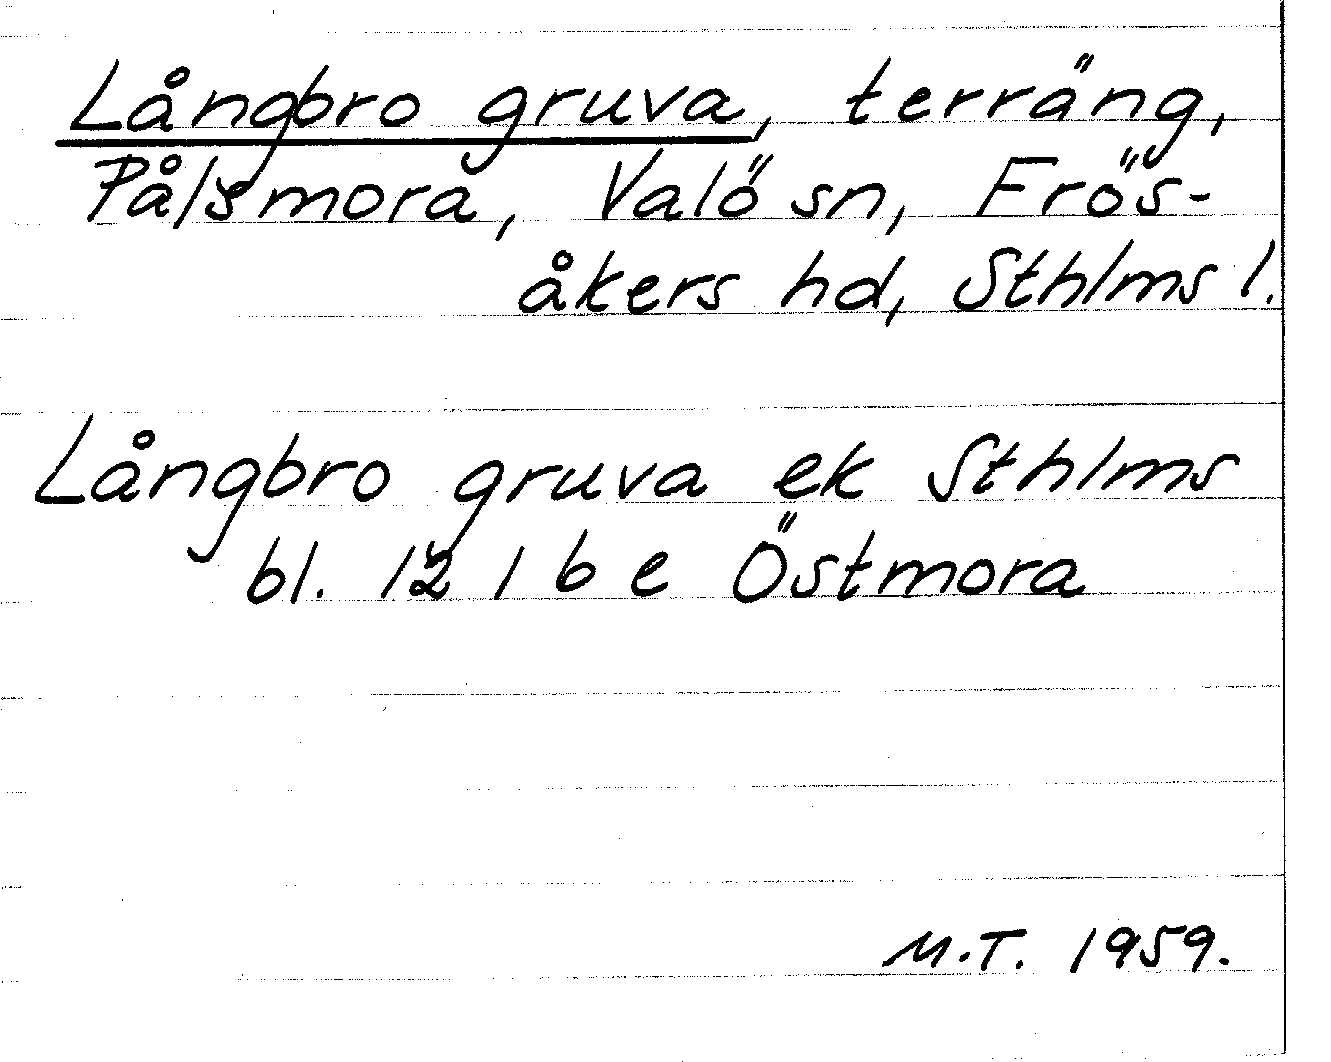 Långbro gruva, terräng,
Pålsmora, Valö sn, Frös-
åkers hd, Sthlms l.
Långbro gruva ek Sthlms
bl. 12 I b e Östmora
M.T. 1959.